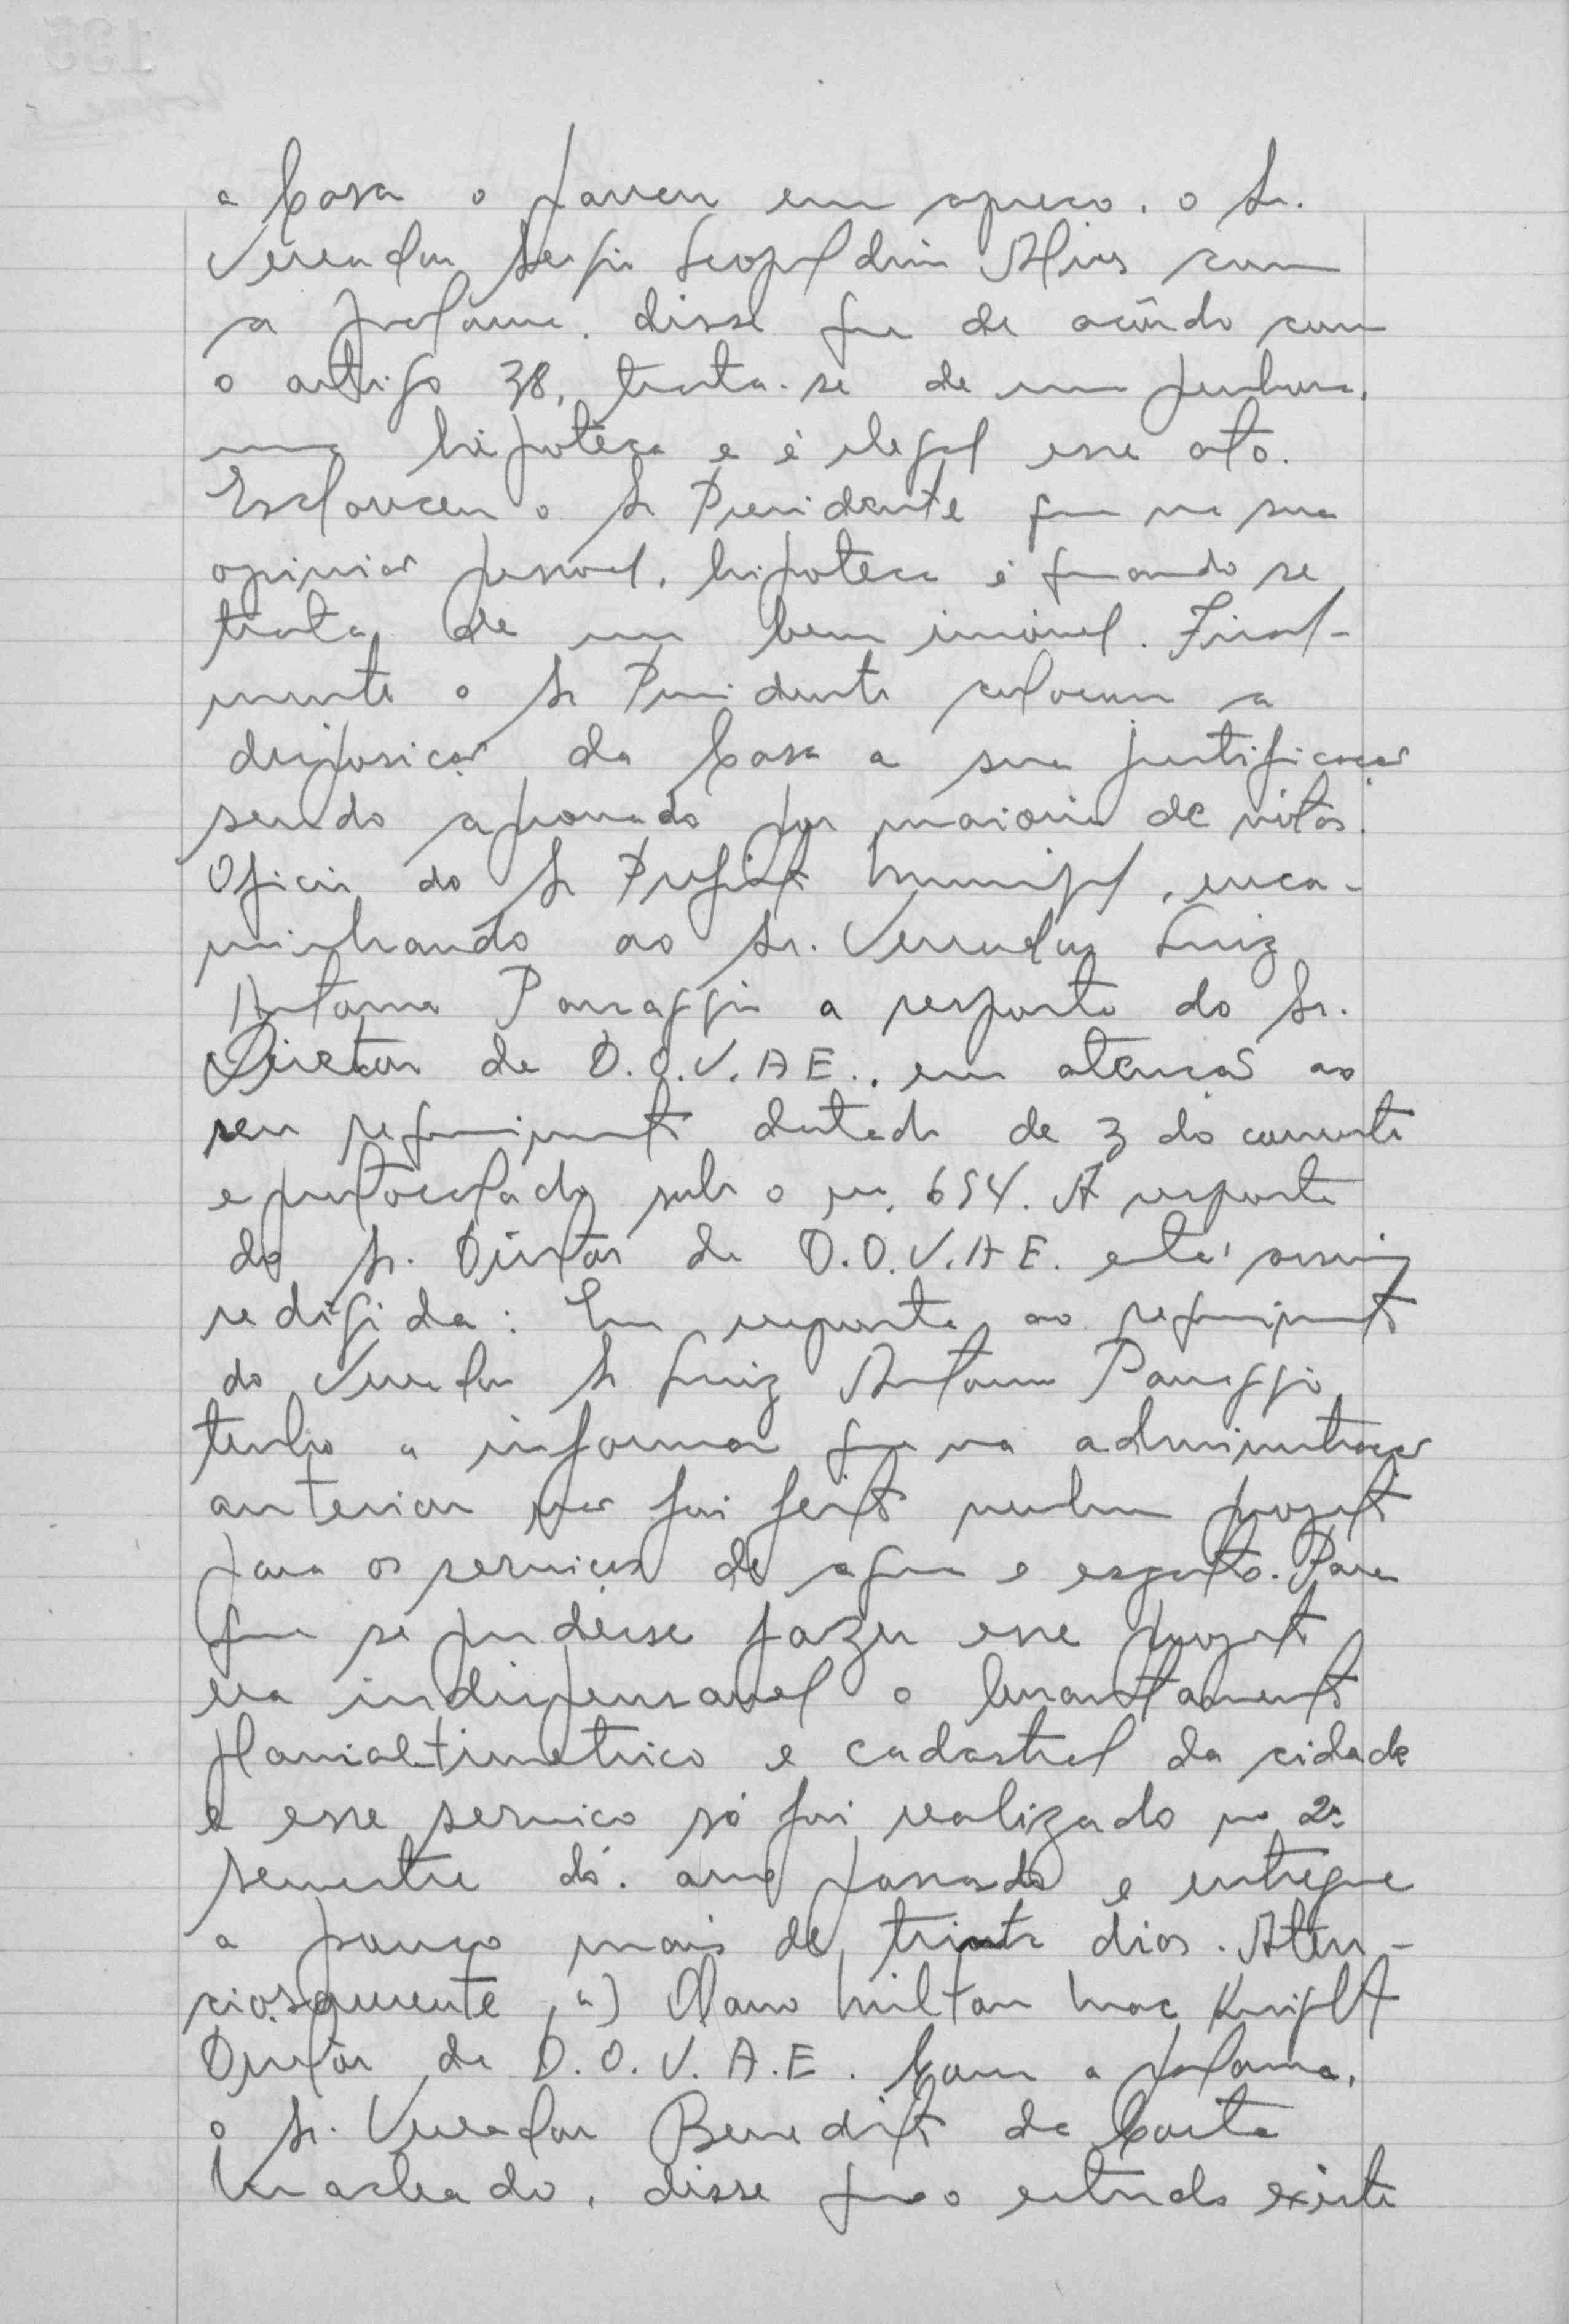 a Casa o parecer em apreço. o Sr.
Vereador Sergio Leopoldino Alves com
a palavra. disse que de acôrdo com
o artigo 38, trata-se de um penhora,
uma hipoteca e é ilegal esse ato.
Esclareceu o Sr Presidente que na sua
opinião pessoal, hipoteca é quando se
trata de um bem imóvel. Final-
mente o Sr Presidente colocou a
disposição da Casa a sua justificação
sendo aprovado por maioria de vótos.
Oficio do Sr Prefeito Municipal, enca-
minhando ao Sr. Vereador Luiz
Antonio Panaggio a resposta do Sr.
Diretor de D.O.V.A E., em atenção ao
seu requerimento datado de 3 do corrente
e protocolado sob o nº. 654. A resposta
do Sr. Diretor de D.O.V.A E. está assim
redigida: Em resposta ao requerimento
do Vereador Sr Luiz Antonio Panaggio
tenho a informar que na administração
anterior não foi feito nenhum projeto
para os serviços de agua e esgoto. Para
que se pudesse fazer esse projeto
era indispensavel o levantamento
planialtimetrico e cadastral da cidade
e esse serviço só foi realizado no 2º
semestre do ano passado e entregue
a pouco mais de trinta dias. Aten-
ciosamente, a) Olavo Milton Mac Knight
Diretor de D.O.V.A.E. Com a palavra,
o Sr. Vereador Benedito da Costa
Machado, disse que o estudo existe